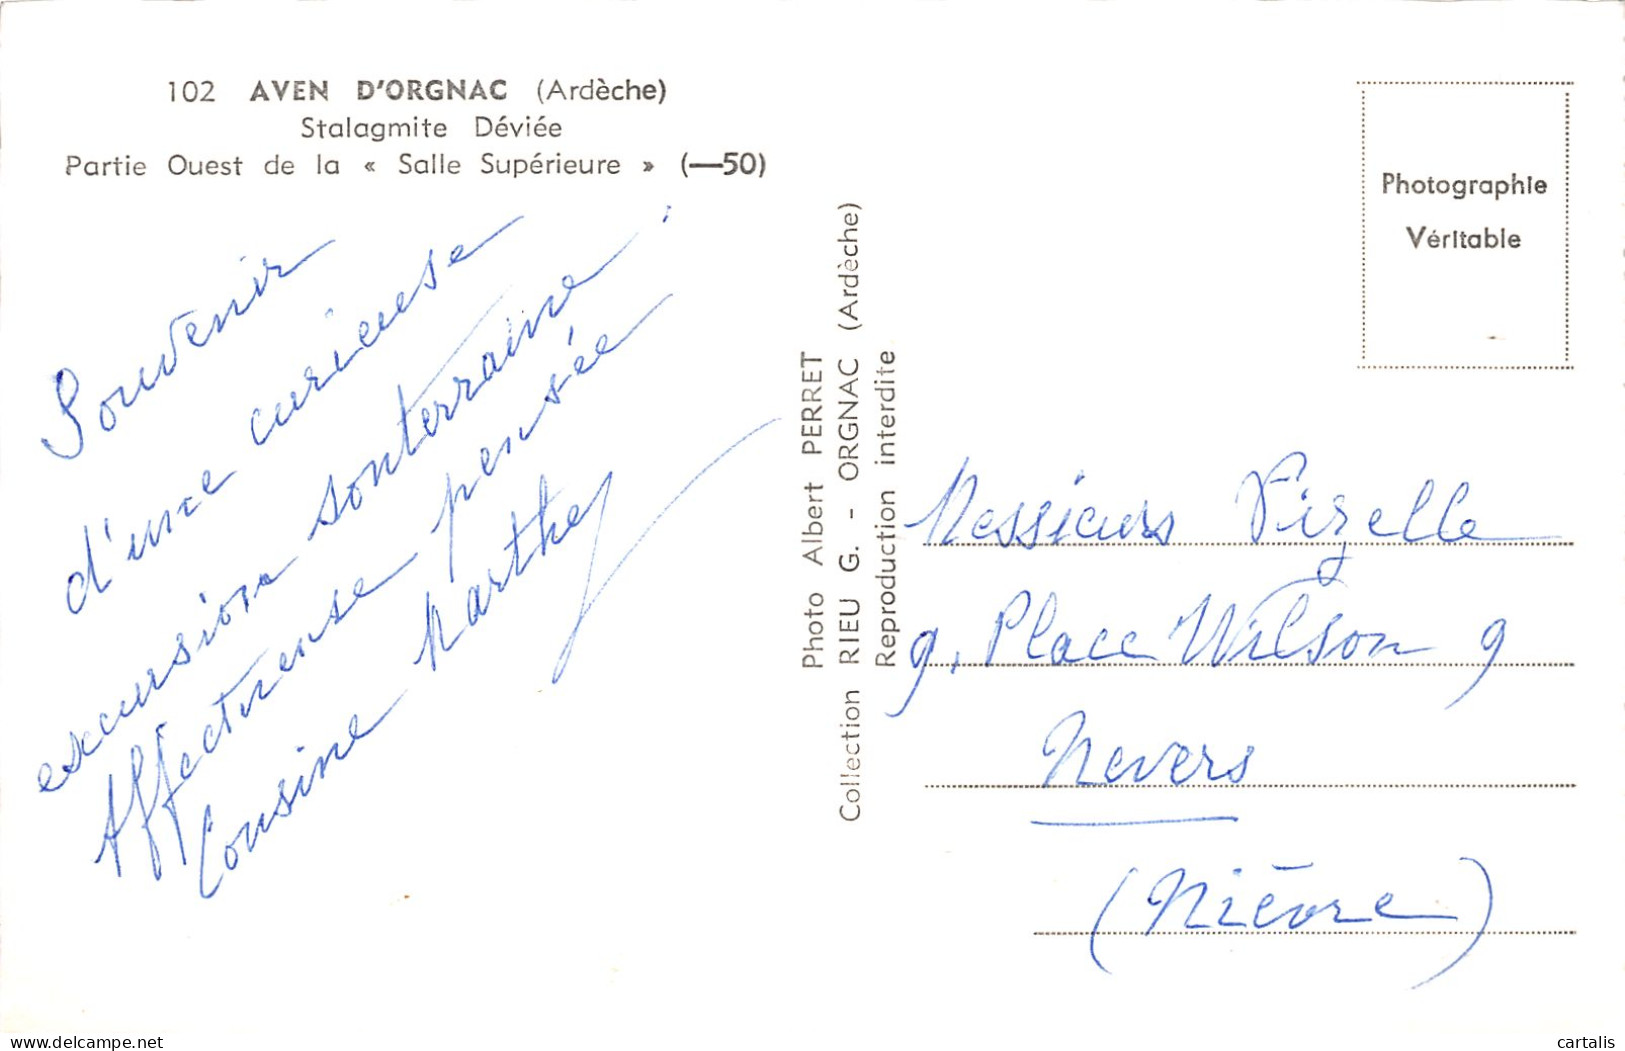 102 AVEN D'ORGNAC (Ardèche)
Stalagmite Déviée
Partie Ouest de la « Salle Supérieure » (—50)
Souvenir
d'une curieuse
excursion souterraine !
Affectueuse pensée
Cousine Marthe
Photo Albert PERRET
Collection RIEU G. - ORGNAC (Ardèche)
Reproduction interdite
Photographie
Véritable
Messieurs Virelle
9, Place Wilson 9
Nevers
(Nièvre)
cartalis
www.delcampe.net